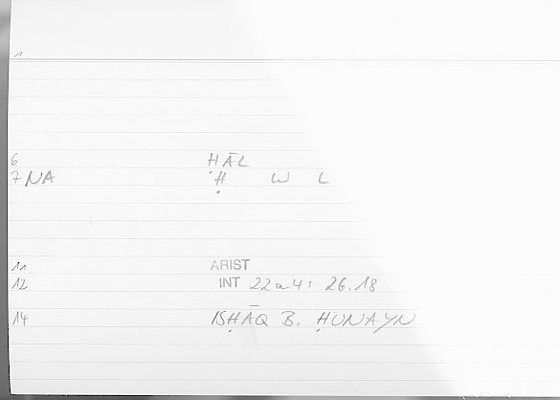 1
6 ḤĀL
7 NA Ḥ W L
11 ARIST
12 INT 22a4: 26.18
14 ISḤĀQ B. ḤUNAYN